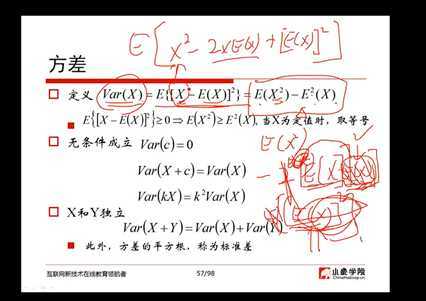 E[X²-2XE(X)+[E(X)]²]
方差
□ 定义 Var(X)=E{[X-E(X)]²}=E(X²)-E²(X)
■ E{[X-E(X)]²}≥0⇒E(X²)≥E²(X), 当X为定值时，取等号
□ 无条件成立 Var(c)=0
E(X²)
Var(X+c)=Var(X)
Var(kX)=k²Var(X)
□ X和Y独立
Var(X+Y)=Var(X)+Var(Y)
■ 此外，方差的平方根，称为标准差
互联网新技术在线教育领航者 57/98 小象学院
ChinaHadoop.cn